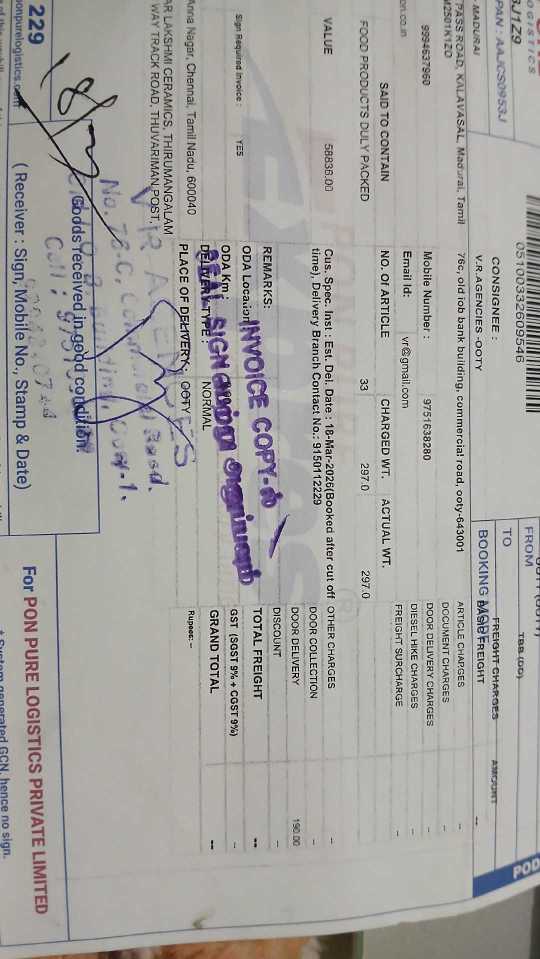 POD
FROM
TO
OOTY (OOTY)
BOOKING MODE
TBB (DD)
05100332609546
OGISTICS
PAN : AAJCS0953J
3J1Z9
CONSIGNEE :
V.R.AGENCIES -OOTY
MADURAI
PASS ROAD, KALAVASAL, Madurai, Tamil
76c, old iob bank building, commercial road, ooty-643001
9994637960
Mobile Number : 9751638280
on.co.in
Email Id: vr@gmail.com
SAID TO CONTAIN
NO. Of ARTICLE
CHARGED WT.
ACTUAL WT.
FOOD PRODUCTS DULY PACKED
33
297.0
297.0
VALUE
58836.00
Cus. Spec. Inst : Est. Del. Date : 18-Mar-2026(Booked after cut off
time), Delivery Branch Contact No.: 9150112229
Sign Required Invoice : YES
REMARKS:
ODA Location
ODA Km :
DELIVERY TYPE : NORMAL
PLACE OF DELIVERY : OOTY
INVOICE COPY-ல்
SEAL SIGN
Anna Nagar, Chennai, Tamil Nadu, 600040
AR LAKSHMI CERAMICS, THIRUMANGALAM
WAY TRACK ROAD, THUVARIMAN POST,
FREIGHT CHARGES AMOUNT
BASIC FREIGHT --
ARTICLE CHARGES --
DOCUMENT CHARGES --
DOOR DELIVERY CHARGES --
DIESEL HIKE CHARGES --
FREIGHT SURCHARGE --
OTHER CHARGES --
DOOR COLLECTION --
DOOR DELIVERY 190.00
DISCOUNT --
TOTAL FREIGHT --
GST (SGST 9% + CGST 9%) --
GRAND TOTAL --
Rupees: --
229
onpurelogistics.com
Goods received in good condition.
( Receiver : Sign, Mobile No., Stamp & Date)
For PON PURE LOGISTICS PRIVATE LIMITED
* System generated GCN, hence no sign.